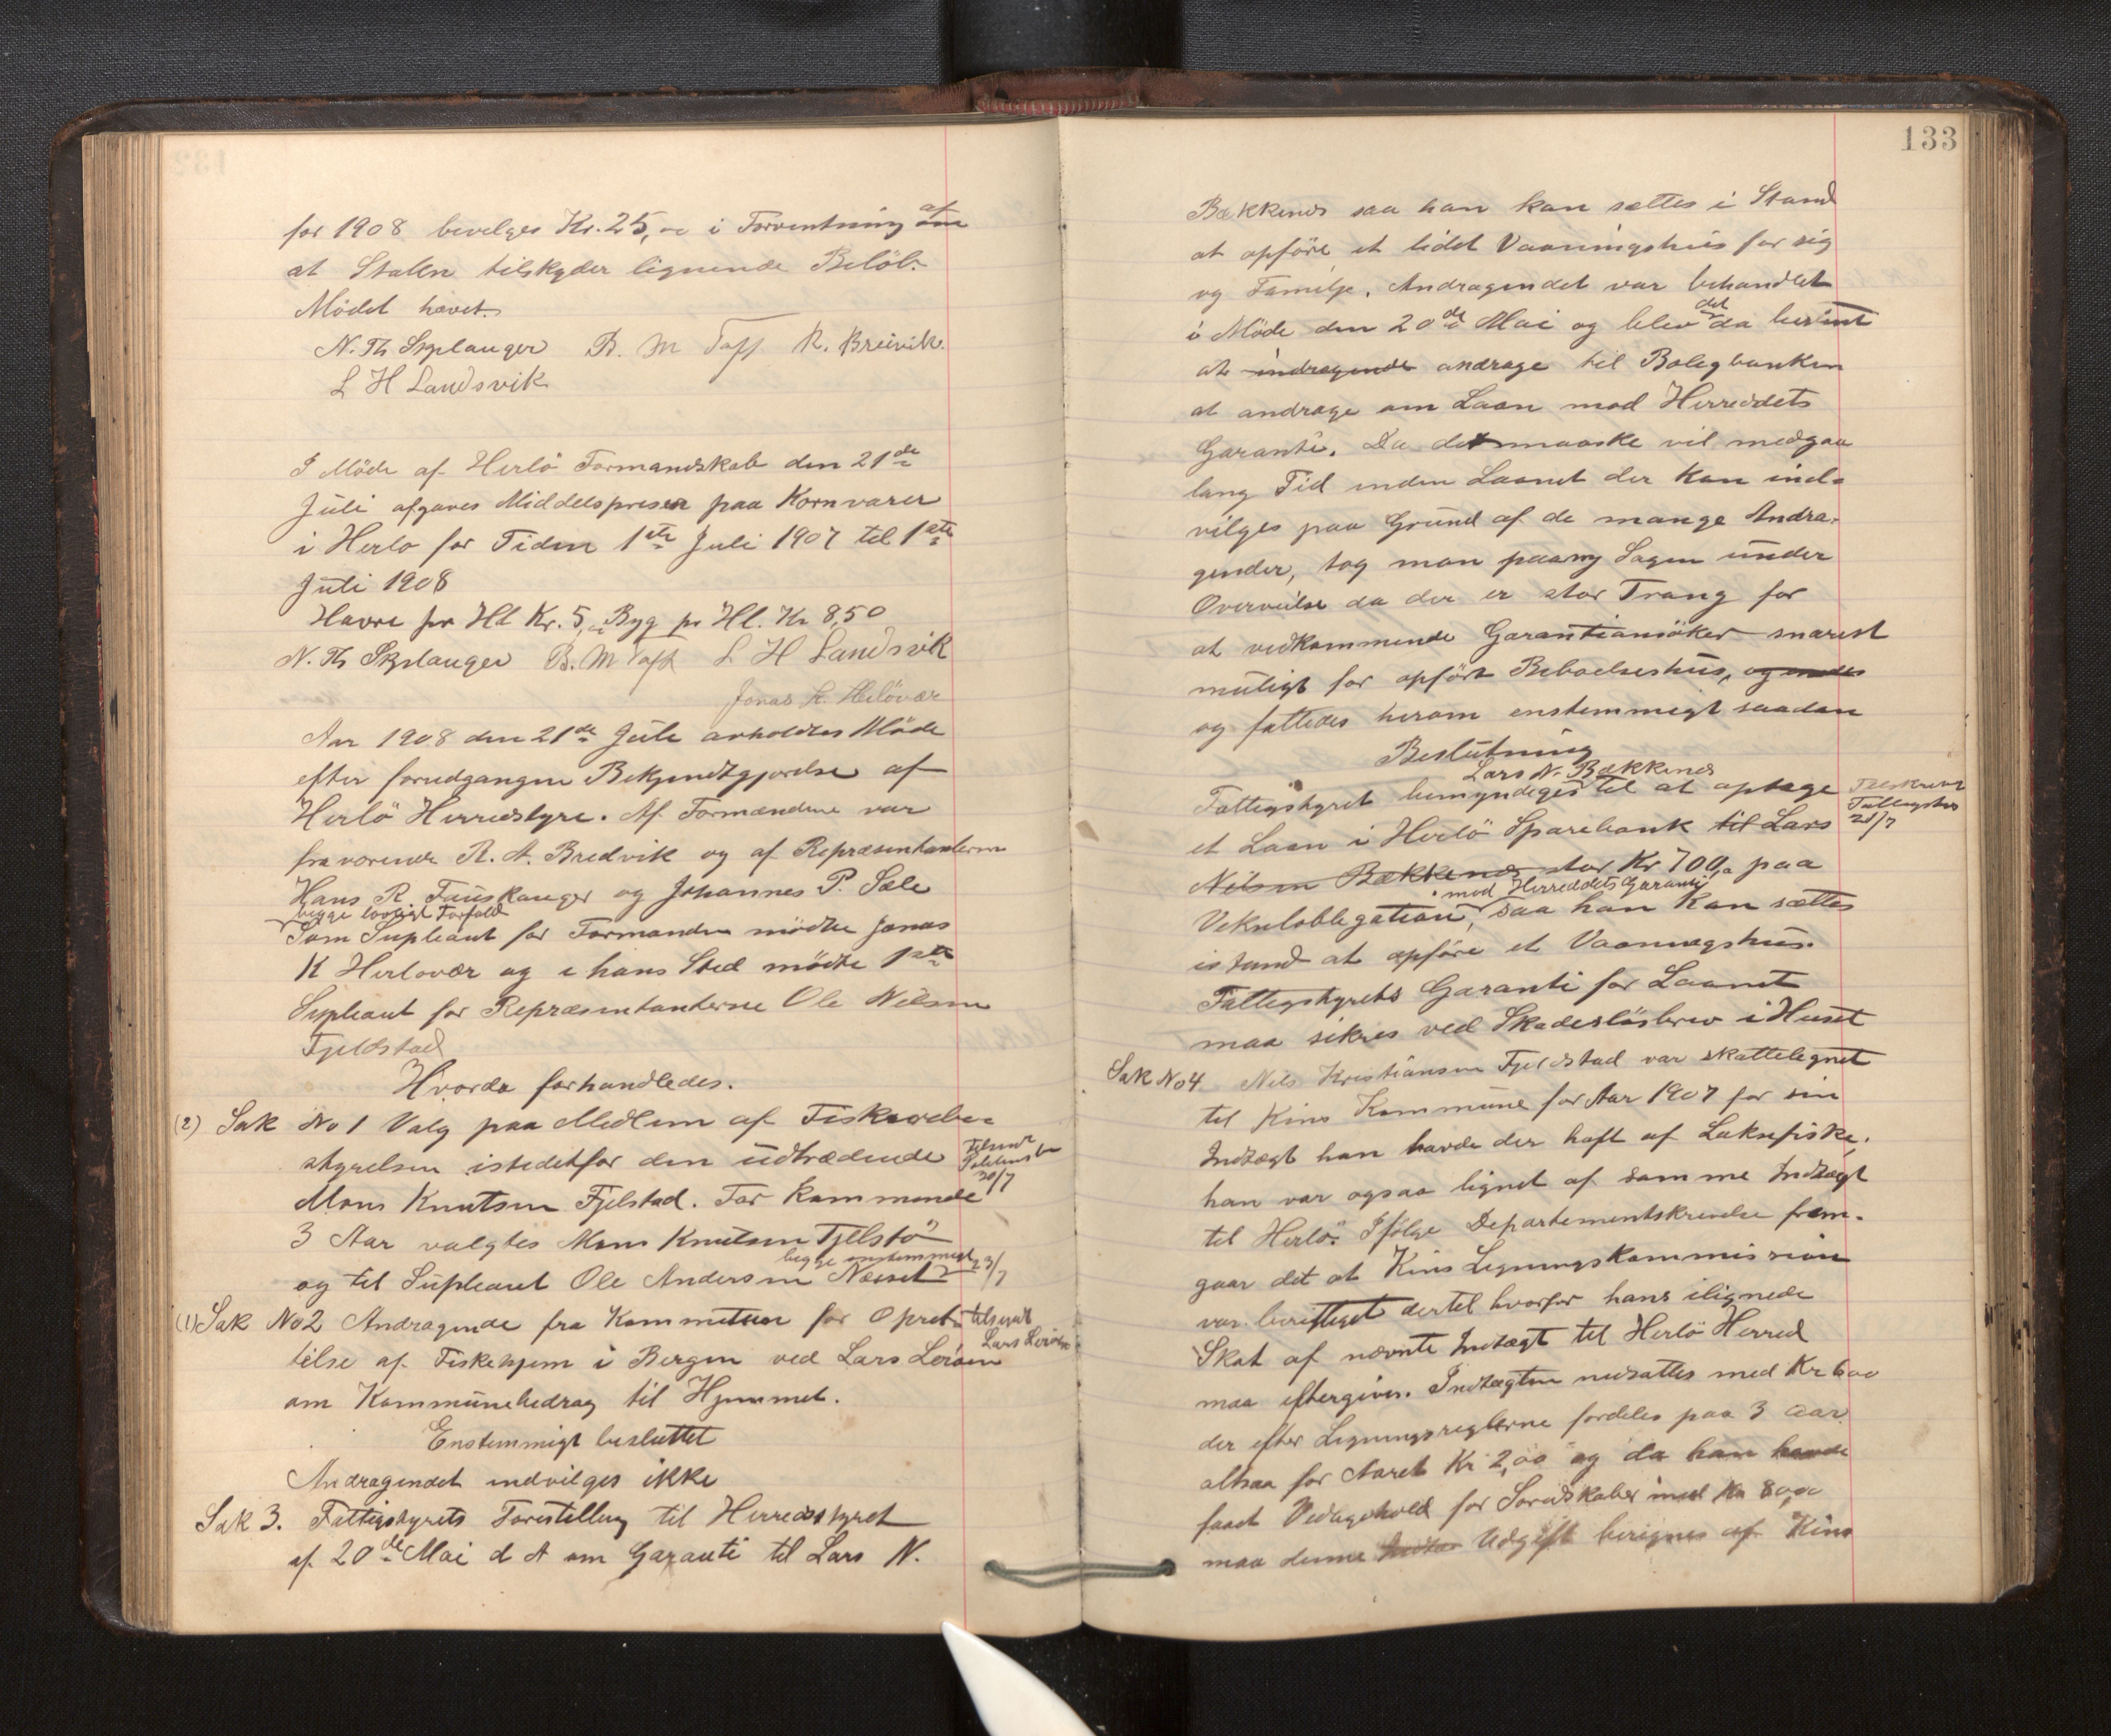 for 1908 bevelges Kr. 25,00 i Forventning af om
at Staten tilskyder lignende Beløb.
Mødet hævet.
N. Th Skjelanger B. M Toft R. Breivik.
L H Landsvik
I Møde af Herlö Formandskab den 21de
Juli afgaves Middelsprisen paa Kornvarer
i Herlo for Tiden 1ste Juli 1907 til 1ste
Juli 1908
Havre pr Hl Kr. 5,00 Byg pr Hl. Kr 8,50
N. Th Skjelanger B. M Toft L H Landsvik
Jonas K. Herløvær
Aar 1908 den 21de Juli avholdtes Møde
efter forudgangen Bekjendtgjørelse af
Herlö Herredstyre. Af Formændene var
fraværende R. A. Bredvik og af Repræsentanterne
Hans R Fauskanger og Johannes P. Sæle
begge lovligt Forfald
Som Supleant for Formanden mödte Jonas
K Herlovær og i hans Sted mödte 1ste
Supleant for Repræsentanterne Ole Nilsen
Fjeldstad
Hvorda forhandledes.
(2) Sak No 1 Valg paa Medlem af Fiskeveder
styrelsen istedetfor den udtrædende
Mons Knutsen Fjelstad. For kommende
3 Aar valgtes Mons Knutsen Fjelstö
begge enstemmigt 23/7
og til Supleant Ole Andersen Næsset
(1) Sak No 2 Andragende fra Kommiteen for Opret-
telse af Fiskehjem i Bergen ved Lars Leröen
tilsendt
Lars Leröen
om Kommunebedrag til Hjemmet.
Enstemmigt besluttet
Andragendet indvilges ikke
Sak 3. Fattigstyrets Forestilling til Herredsstyret
af 20de Mai d A om Garanti til Lars N.
133
Bækkenes saa han kan sættes i Stand
at opføre et lidet Vaaningshus for sig
og Familje. Andragendet var behandlet
i Møde den 20de Mai og blev det da bestemt
at indragende andrage til Boligbanken
at andrage om Laan mod Herredets
Garanti. Da det maaske vil medgaa
lang Tid inden Laanet der kan ind-
vilges paa Grund af de mange Andra-
gender, tog man paany Sagen under
Overveielse da der er stor Trang for
at vedkommende Garantiansöker snarest
muligt for opfört Beboelseshus, og
og fattedes herom enstemmigt saadan
Beslutning
Lars N. Bækkenes
Fattigstyret bemyndiges til at optage
Tilskrevet
Fattigstyr
21/7
et Laan i Herlö Sparebank til Lars
Nilsen Bækkenes stor Kr 700,00 paa
mod Herredets Garanti
Vekselobligation, saa han kan sættes
istand at opføre et Vaaningshus.
Fattigstyrets Garanti for Laanet
maa sikres ved Skadeslösbrev i Huset
Sak No 4 Nils Kristiansen Fjeldstad var skattelignet
til Kinn Kommune for Aar 1907 for sin
Indtægt han havde der haft af Laksefiske;
han var ogsaa lignet af samme Indtægt
til Herlö. Ifölge Departementskrivelse frem-
gaar det at Kins Ligningskommission
var berettiget dertil hvorfor hans ilignede
Skat af nævnte Indtægt til Herlö Herred
maa eftergives. Indtægten nedsattes med Kr 600
der efter Ligningsreglerne fordeles paa 3 Aar
altsaa for Aaret Kr 2,00 og da han havde
faaet Vedligehold for Soredskaber med Kr 80,00
maa denne Udgift berignes af Kinn